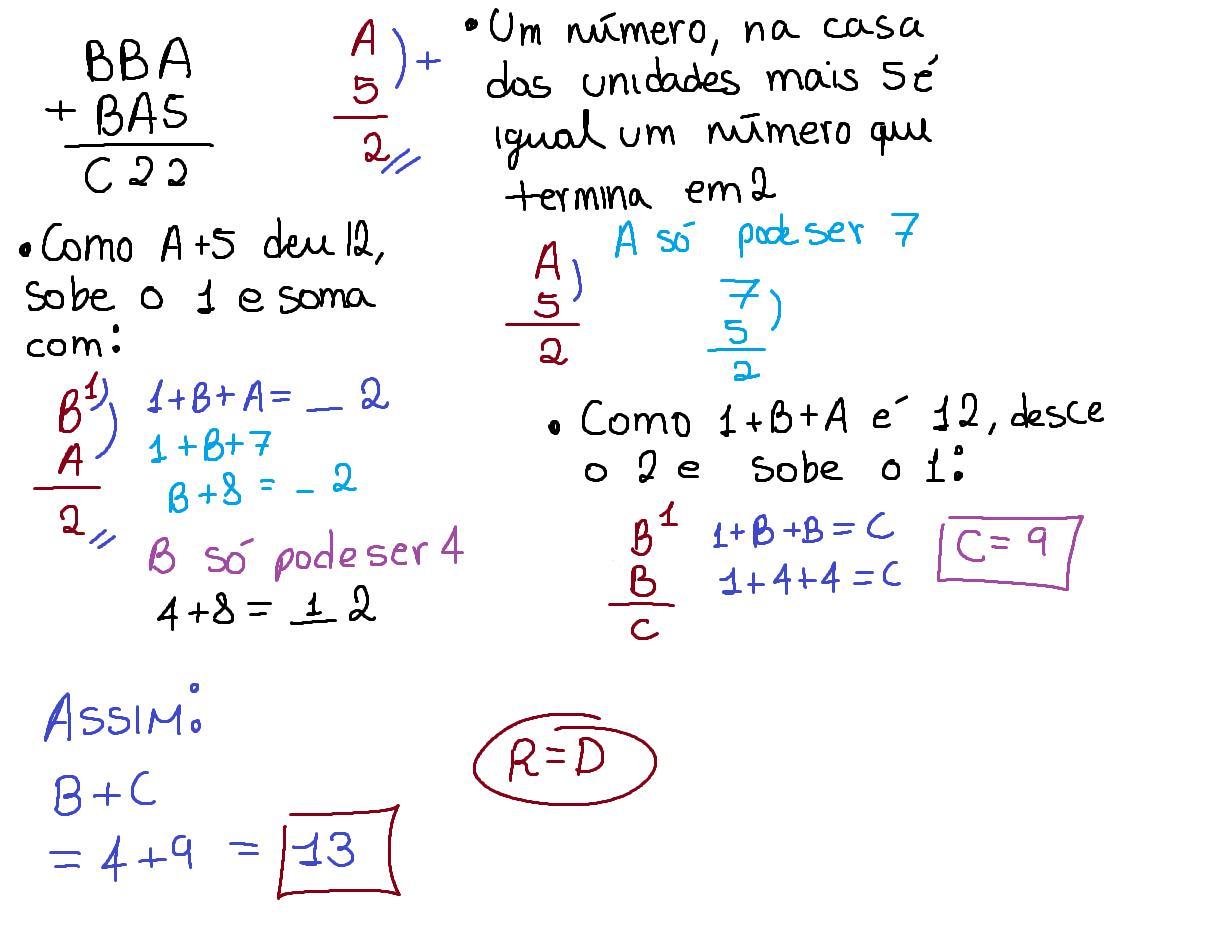 BBA
+ BA5
C 2 2
A
5 ) +
2 //
• Um número, na casa
das unidades mais 5 é
igual um número que
termina em 2
• Como A+5 deu 12,
sobe o 1 e soma
com:
A só pode ser 7
A
5 )
2
7
5 )
2
B¹ )
A )
2 //
1+B+A= _ 2
1+B+7
B+8 = _ 2
B só pode ser 4
4+8 = 1 2
• Como 1+B+A é 12, desce
o 2 e sobe o 1:
B¹
B
C
1+B+B = C
1+4+4 = C
C = 9
ASSIM:
B+C
= 4+9 = 13
R=D